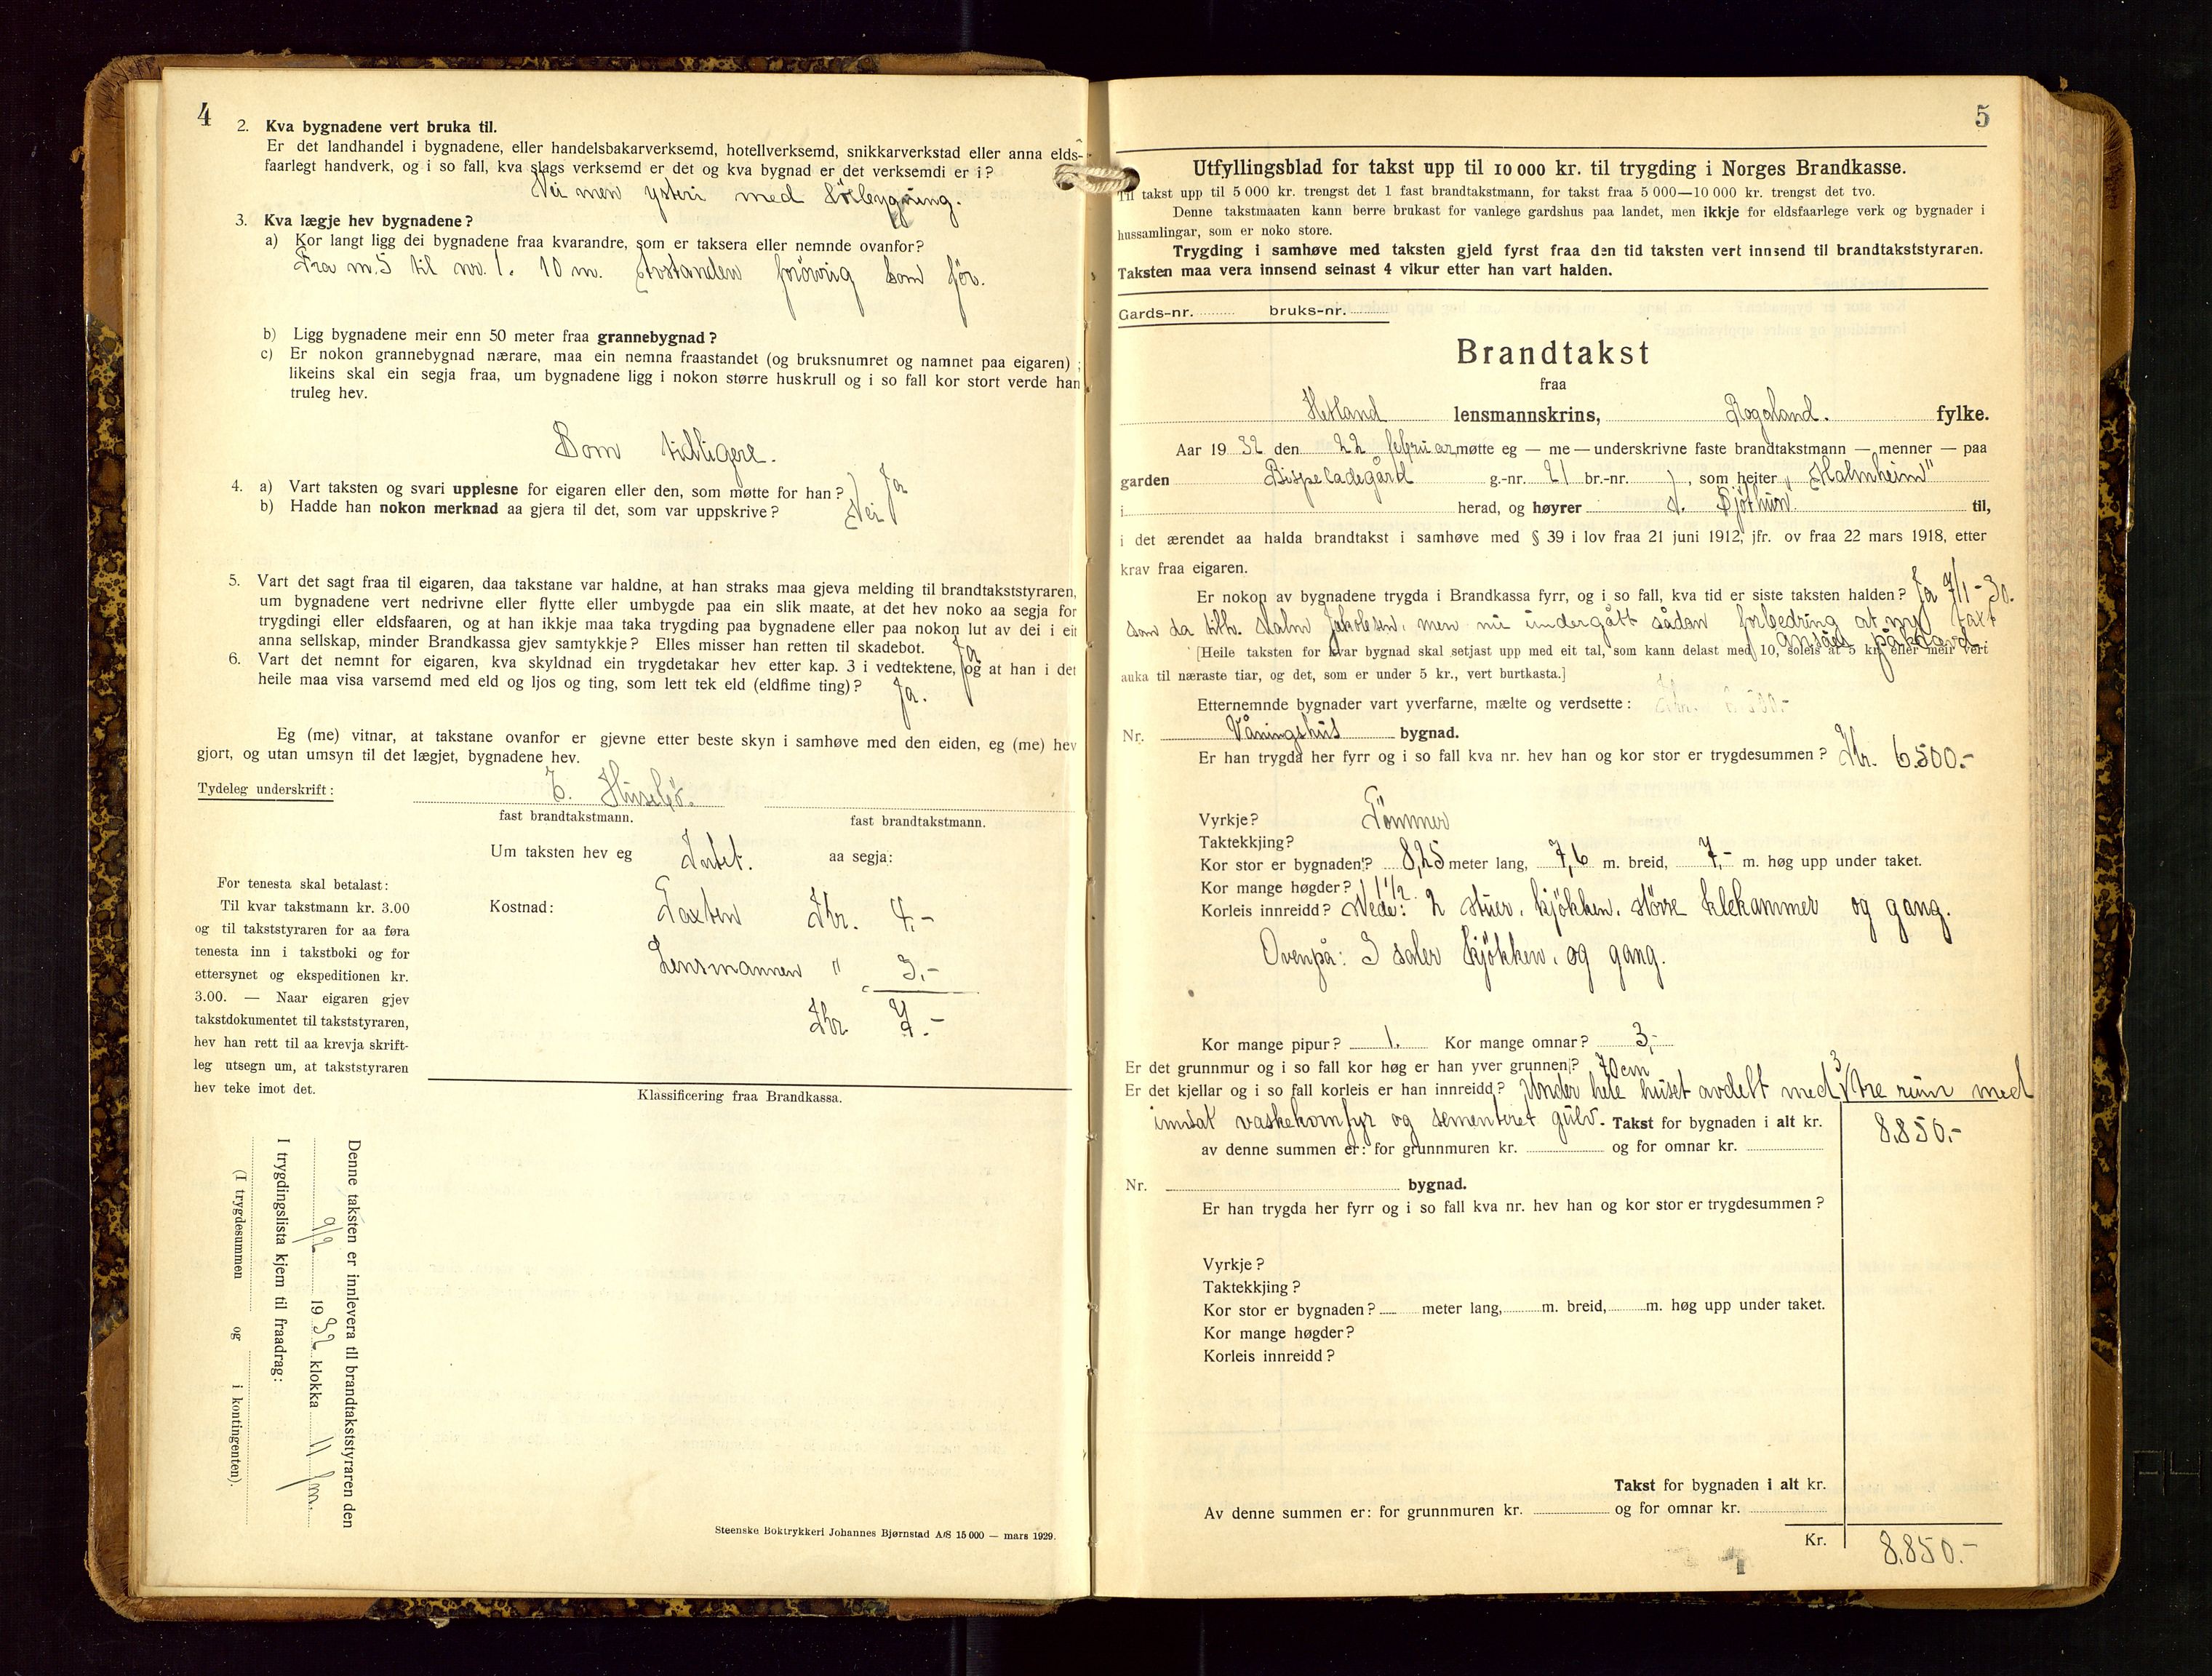 4
2. Kva bygnadene vert bruka til.
Er det landhandel i bygnadene, eller handelsbakarverksemd, hotellverksemd, snikkarverkstad eller anna elds-
faarlegt handverk, og i so fall, kva slags verksemd er det og kva bygnad er det verksemdi er i?
Nei men ysteri med
3. Kva lægje hev bygnadene?
a) Kor langt ligg dei bygnadene fraa kvarandre, som er taksera eller nemnde ovanfor?
Fra nr. 5 til nr. 1. 10 m. Avstanden forøvrig som før.
b) Ligg bygnadene meir enn 50 meter fraa grannebygnad?
c) Er nokon grannebygnad nærare, maa ein nemna fraastandet (og bruksnumret og namnet paa eigaren);
likeins skal ein segja fraa, um bygnadene ligg i nokon større huskrull og i so fall kor stort verde han
truleg hev.
Som tidligere.
4. a) Vart taksten og svari upplesne for eigaren eller den, som møtte for han? Ja
b) Hadde han nokon merknad aa gjera til det, som var uppskrive? Nei
5. Vart det sagt fraa til eigaren, daa takstane var haldne, at han straks maa gjeva melding til brandtakststyraren,
um bygnadene vert nedrivne eller flytte eller umbygde paa ein slik maate, at det hev noko aa segja for
trygdingi eller eldsfaaren, og at han ikkje maa taka trygding paa bygnadene eller paa nokon lut av dei i eit
anna sellskap, minder Brandkassa gjev samtykkje? Elles misser han retten til skadebot. Ja
6. Vart det nemnt for eigaren, kva skyldnad ein trygdetakar hev etter kap. 3 i vedtektene, og at han i det
heile maa visa varsemd med eld og ljos og ting, som lett tek eld (eldfime ting)? Ja.
Eg (me) vitnar, at takstane ovanfor er gjevne etter beste skyn i samhøve med den eiden, eg (me) hev
gjort, og utan umsyn til det lægjet, bygnadene hev.
Tydeleg underskrift: Husebø.
fast brandtakstmann. fast brandtakstmann.
Um taksten hev eg Intet. aa segja:
For tenesta skal betalast:
Til kvar takstmann kr. 3.00
og til takststyraren for aa føra
tenesta inn i takstboki og for
ettersynet og ekspeditionen kr.
3.00. — Naar eigaren gjev
takstdokumentet til takststyraren,
hev han rett til aa krevja skrift-
leg utsegn um, at takststyraren
hev teke imot det.
Kostnad: Taxten Kr. 4,-
Lensmannen " 3,-
Kr. 7.-
Klassificering fraa Brandkassa.
Denne taksten er innlevera til brandtakststyraren den
9/2 1932 klokka 11 fm.
I trygdingslista kjem til fraadrag:
(I trygdesummen og i kontingenten).
Steenske Boktrykkeri Johannes Bjørnstad A/S 15 000 — mars 1929.
5
Utfyllingsblad for takst upp til 10 000 kr. til trygding i Norges Brandkasse.
Til takst upp til 5 000 kr. trengst det 1 fast brandtakstmann, for takst fraa 5 000—10 000 kr. trengst det tvo.
Denne takstmaaten kann berre brukast for vanlege gardshus paa landet, men ikkje for eldsfaarlege verk og bygnader i
hussamlingar, som er noko store.
Trygding i samhøve med taksten gjeld fyrst fraa den tid taksten vert innsend til brandtakststyraren.
Taksten maa vera innsend seinast 4 vikur etter han vart halden.
Gards-nr. bruks-nr.
Brandtakst
fraa
Hetland lensmannskrins, Rogaland. fylke.
Aar 1932 den 22 februar møtte eg — me — underskrivne faste brandtakstmann — menner — paa
garden Bispeladegård g.-nr. 21 br.-nr. , som heiter "Malmheim"
i herad, og høyrer til,
i det ærendet aa halda brandtakst i samhøve med § 39 i lov fraa 21 juni 1912, jfr. ov fraa 22 mars 1918, etter
krav fraa eigaren.
Er nokon av bygnadene trygda i Brandkassa fyrr, og i so fall, kva tid er siste taksten halden? Ja 7/1-30.
som da tilh. Malm Jakobsen, men nu undergått sådan forbedring at ny taxt
ansåes påkrævd.
[Heile taksten for kvar bygnad skal setjast upp med eit tal, som kann delast med 10, soleis at 5 kr. eller meir vert
auka til næraste tiar, og det, som er under 5 kr., vert burtkasta.]
Etternemnde bygnader vart yverfarne, mælte og verdsette:
Nr. Våningshus bygnad.
Er han trygda her fyrr og i so fall kva nr. hev han og kor stor er trygdesummen? Kr. 6.500.-
Vyrkje? Tømmer
Taktekkjing?
Kor stor er bygnaden? 8,25 meter lang, 7,6 m. breid, 7,- m. høg upp under taket.
Kor mange høgder? 1 1/2
Korleis innreidd? Nede: 2 stuer, kjøkken, større klekammer og gang.
Ovenpå: 3 saler kjøkken, og gang.
Kor mange pipur? 1. Kor mange omnar? 3,-
Er det grunnmur og i so fall kor høg er han yver grunnen? 70 cm
Er det kjellar og i so fall korleis er han innreidd? Under hele huset avdelt med 3 tre rum med
innsat vaskekomfyr og sementeret gulv. Takst for bygnaden i alt kr. 8.850.-
av denne summen er: for grunnmuren kr. og for omnar kr.
Nr. bygnad.
Er han trygda her fyrr og i so fall kva nr. hev han og kor stor er trygdesummen?
Vyrkje?
Taktekkjing?
Kor stor er bygnaden? meter lang, m. breid, m. høg upp under taket.
Kor mange høgder?
Korleis innreidd?
Takst for bygnaden i alt kr.
Av denne summen er: for grunnmuren kr. og for omnar kr.
Kr. 8.850.-